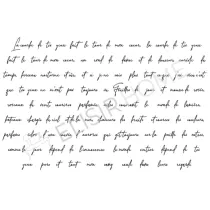 La courbe de tes yeux fait le tour de mon coeur la courbe de tes yeux
fait le tour de mon coeur un rond de danse et de douceur auréole du
temps berceau nocturne et sûr et si je ne sais plus tout ce que j'ai vécu c'est
que tes yeux ne m'ont pas toujours vu Feuilles de jour et mousse de rosée
roseaux du vent sourires parfumés ailes couvrant le monde de lumière
bateaux chargés du ciel et de la mer chasseurs des bruits et sources des couleurs
parfums éclos d'une couvée d'aurores qui gît toujours sur la paille des astres
comme le jour dépend de l'innocence le monde entier dépend de tes
yeux purs et tout mon sang coule dans leurs regards